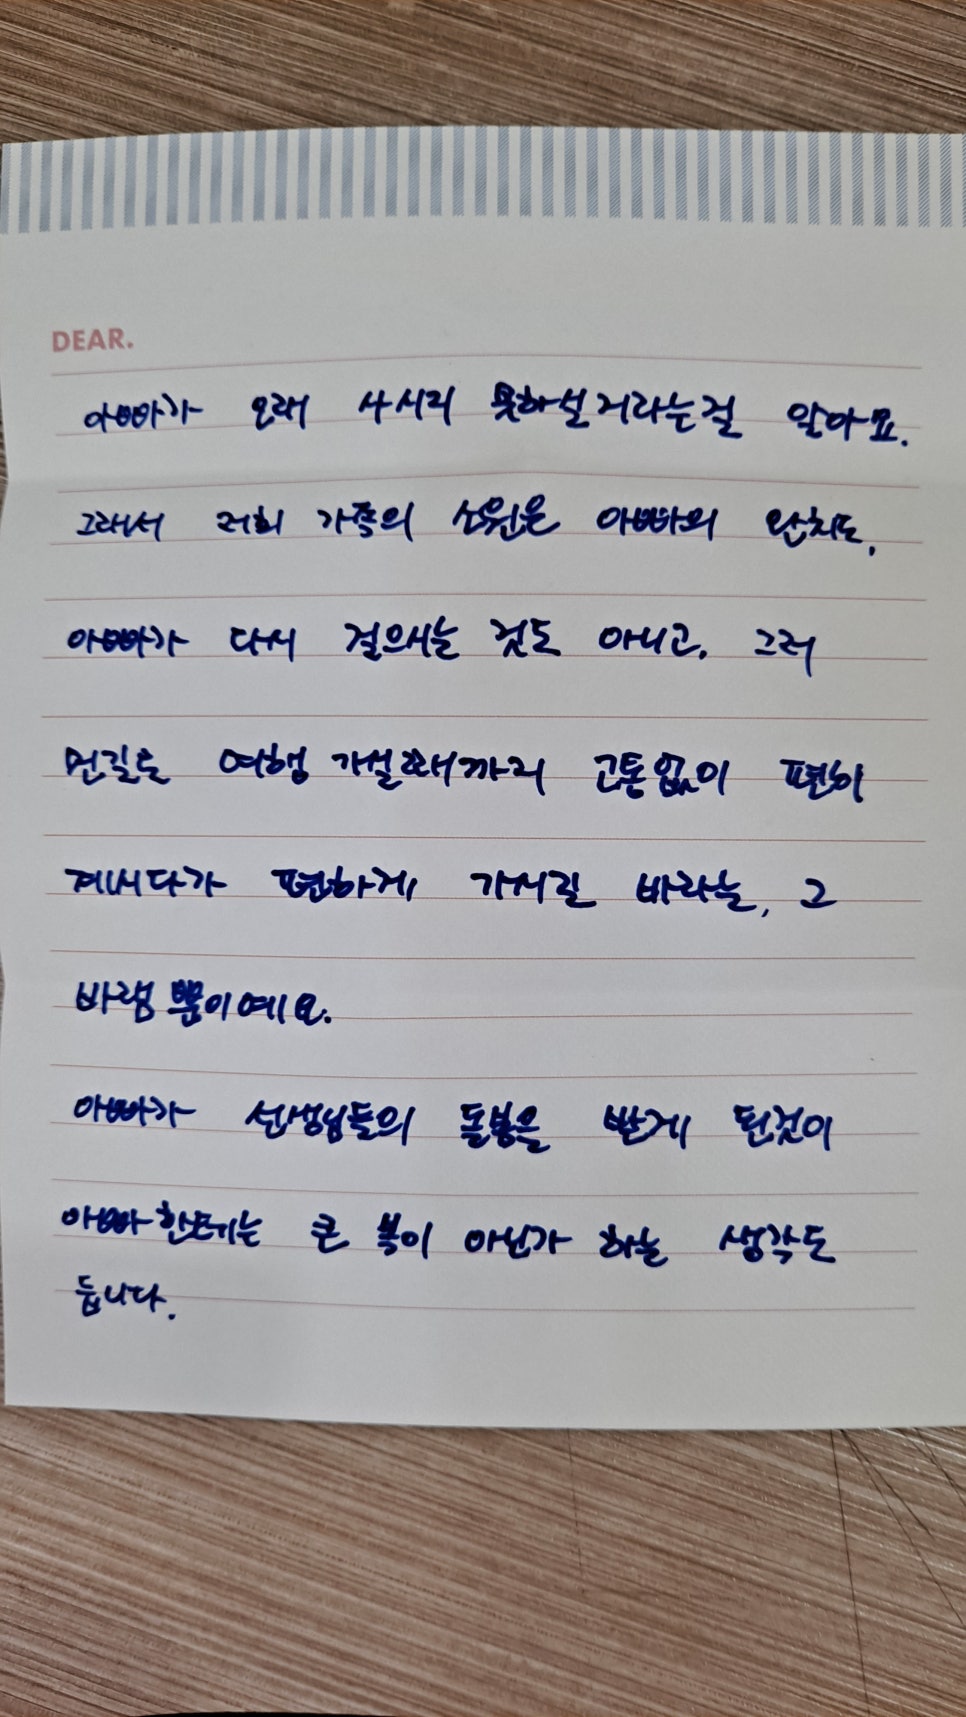 DEAR.
아빠가 오래 사시지 못하실거라는걸 알아요.
그래서 저희 가족의 소원은 아빠의 완치도,
아빠가 다시 걸으시는 것도 아니고, 그저
먼길로 여행 가실때까지 고통없이 편히
계시다가 편하게 가시길 바라는, 그
바램 뿐이예요.
아빠가 선생님들의 돌봄을 받게 된것이
아빠한테는 큰 복이 아닌가 하는 생각도
듭니다.